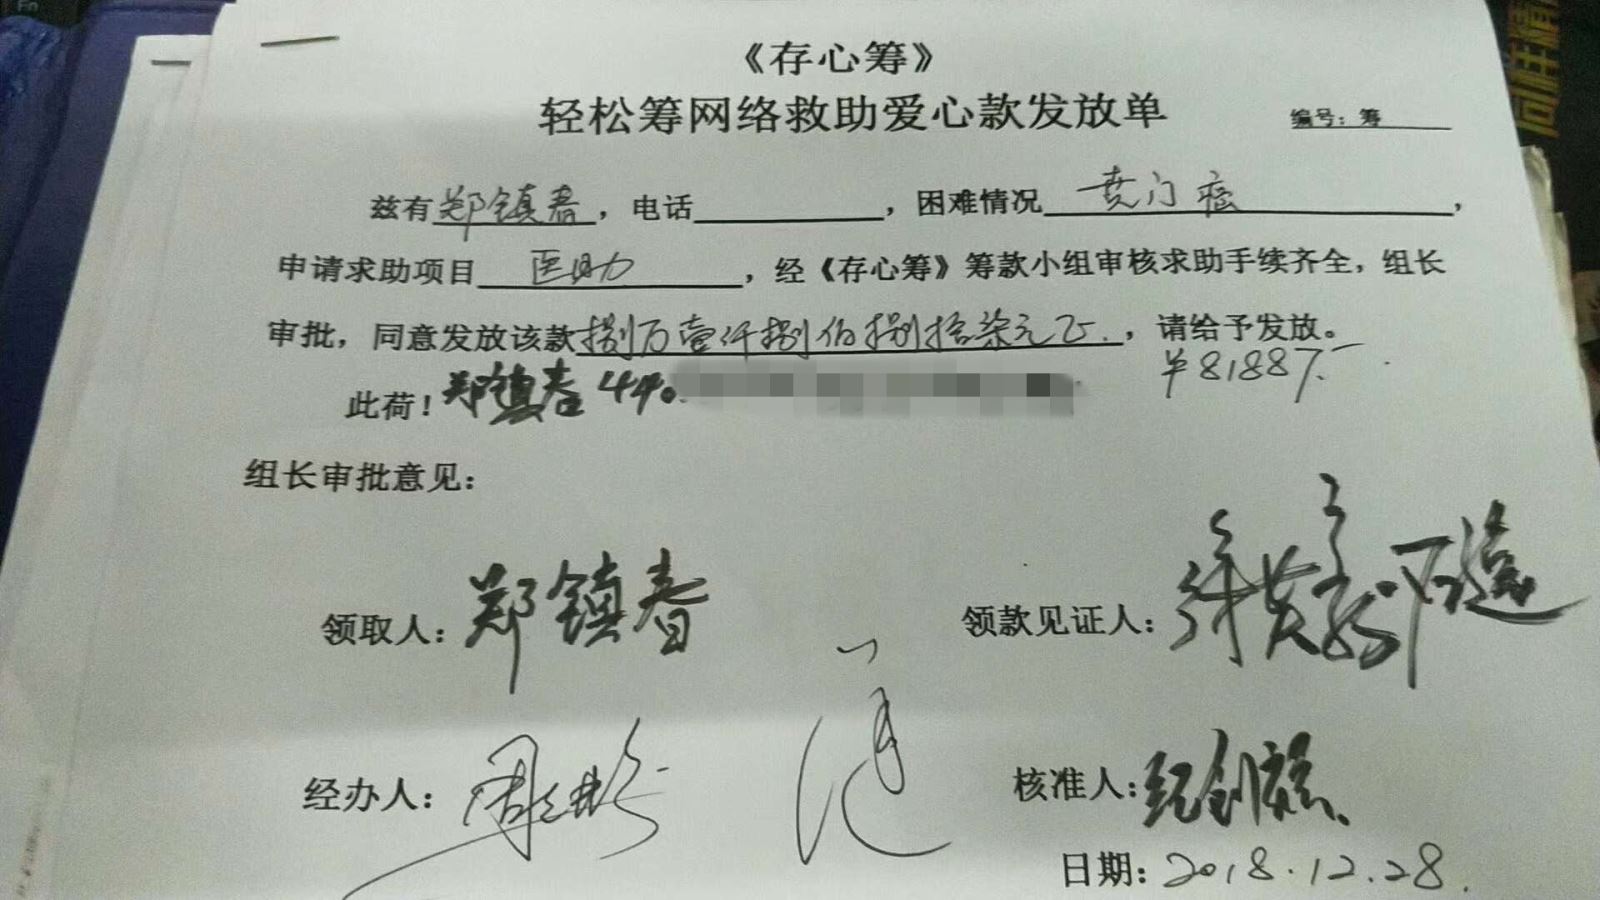 《存心筹》
轻松筹网络救助爱心款发放单
编号：筹
兹有郑镇春，电话，困难情况贲门癌，
申请求助项目医助，经《存心筹》筹款小组审核求助手续齐全，组长
审批，同意发放该款捌万壹仟捌佰捌拾柒元正.，请给予发放。
¥81887.-
此荷！郑镇春 440
组长审批意见：
领取人：郑镇春
领款见证人：
经办人：
核准人：
日期：2018.12.28.